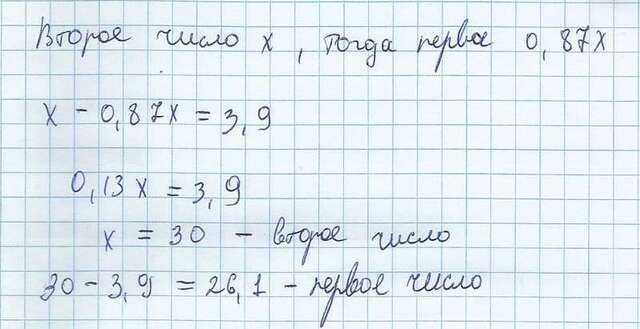 Второе число x, тогда первое 0,87x
x - 0,87x = 3,9
0,13x = 3,9
x = 30 - второе число
30 - 3,9 = 26,1 - первое число